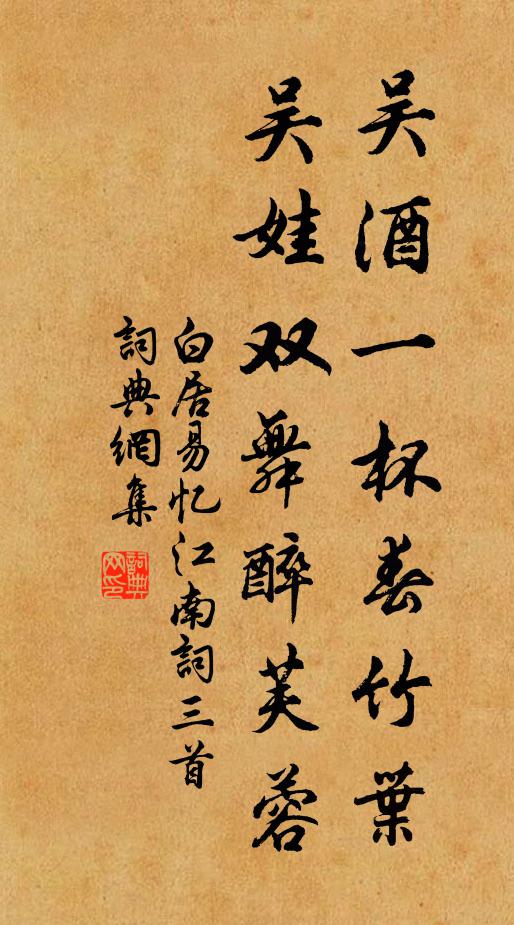 吴酒一杯春竹葉
吴娃双舞醉芙蓉
白居易忆江南詞三首
詞典網集
詞典网印